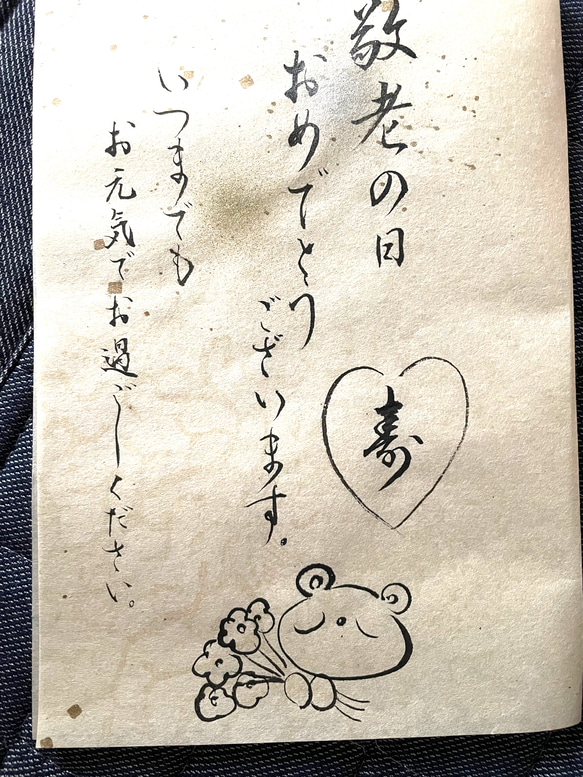 敬老の日
おめでとう
ございます。
いつまでも
お元気で
お過ごしください。
寿